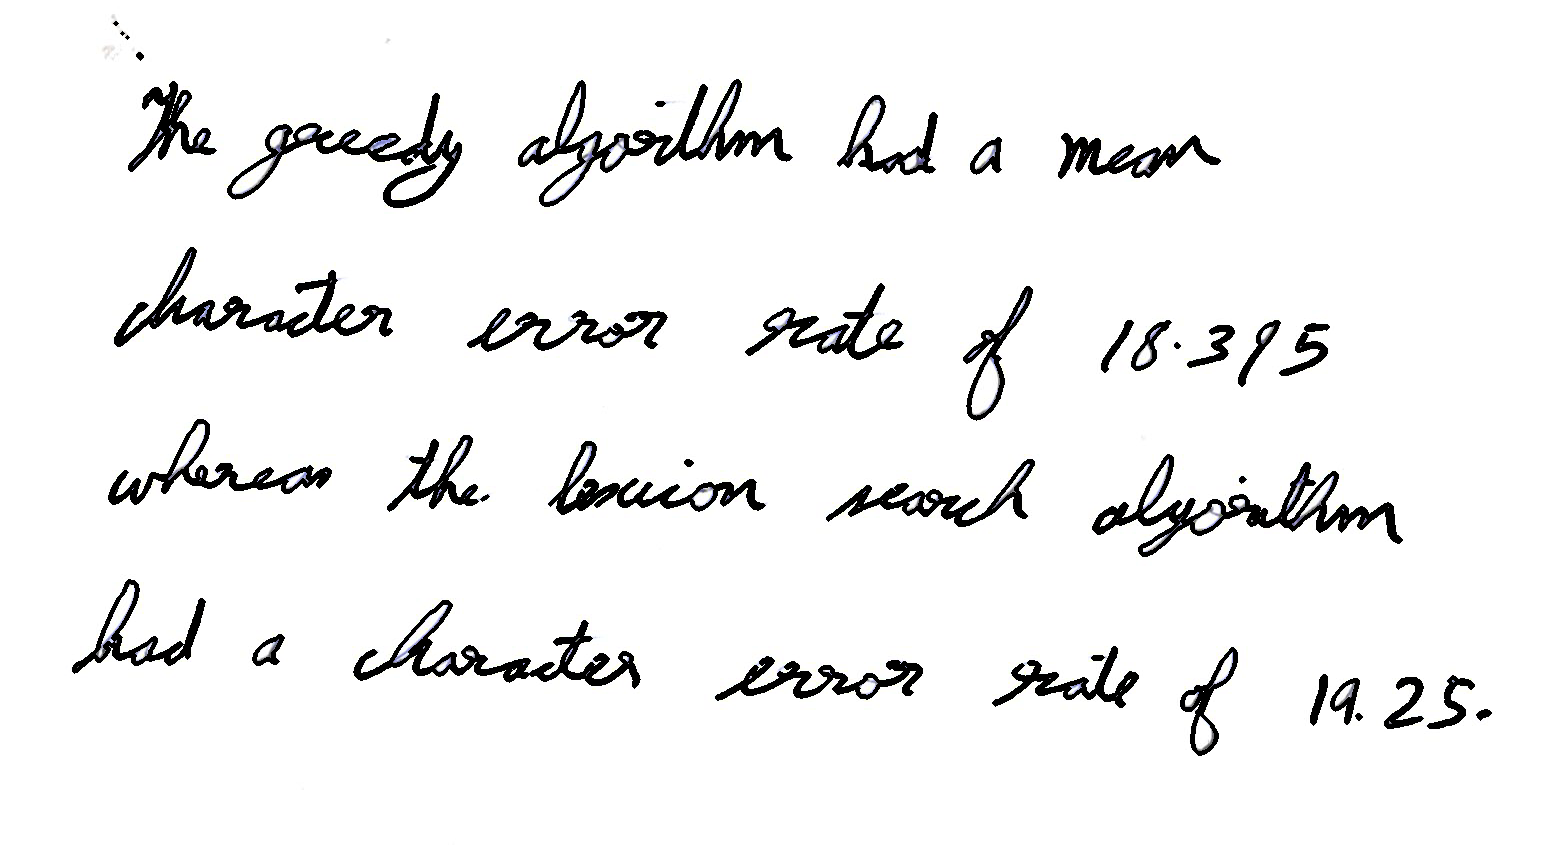 The greedy algorithm had a mean
character error rate of 18.395
whereas the lexicon search algorithm
had a character error rate of 19.25.